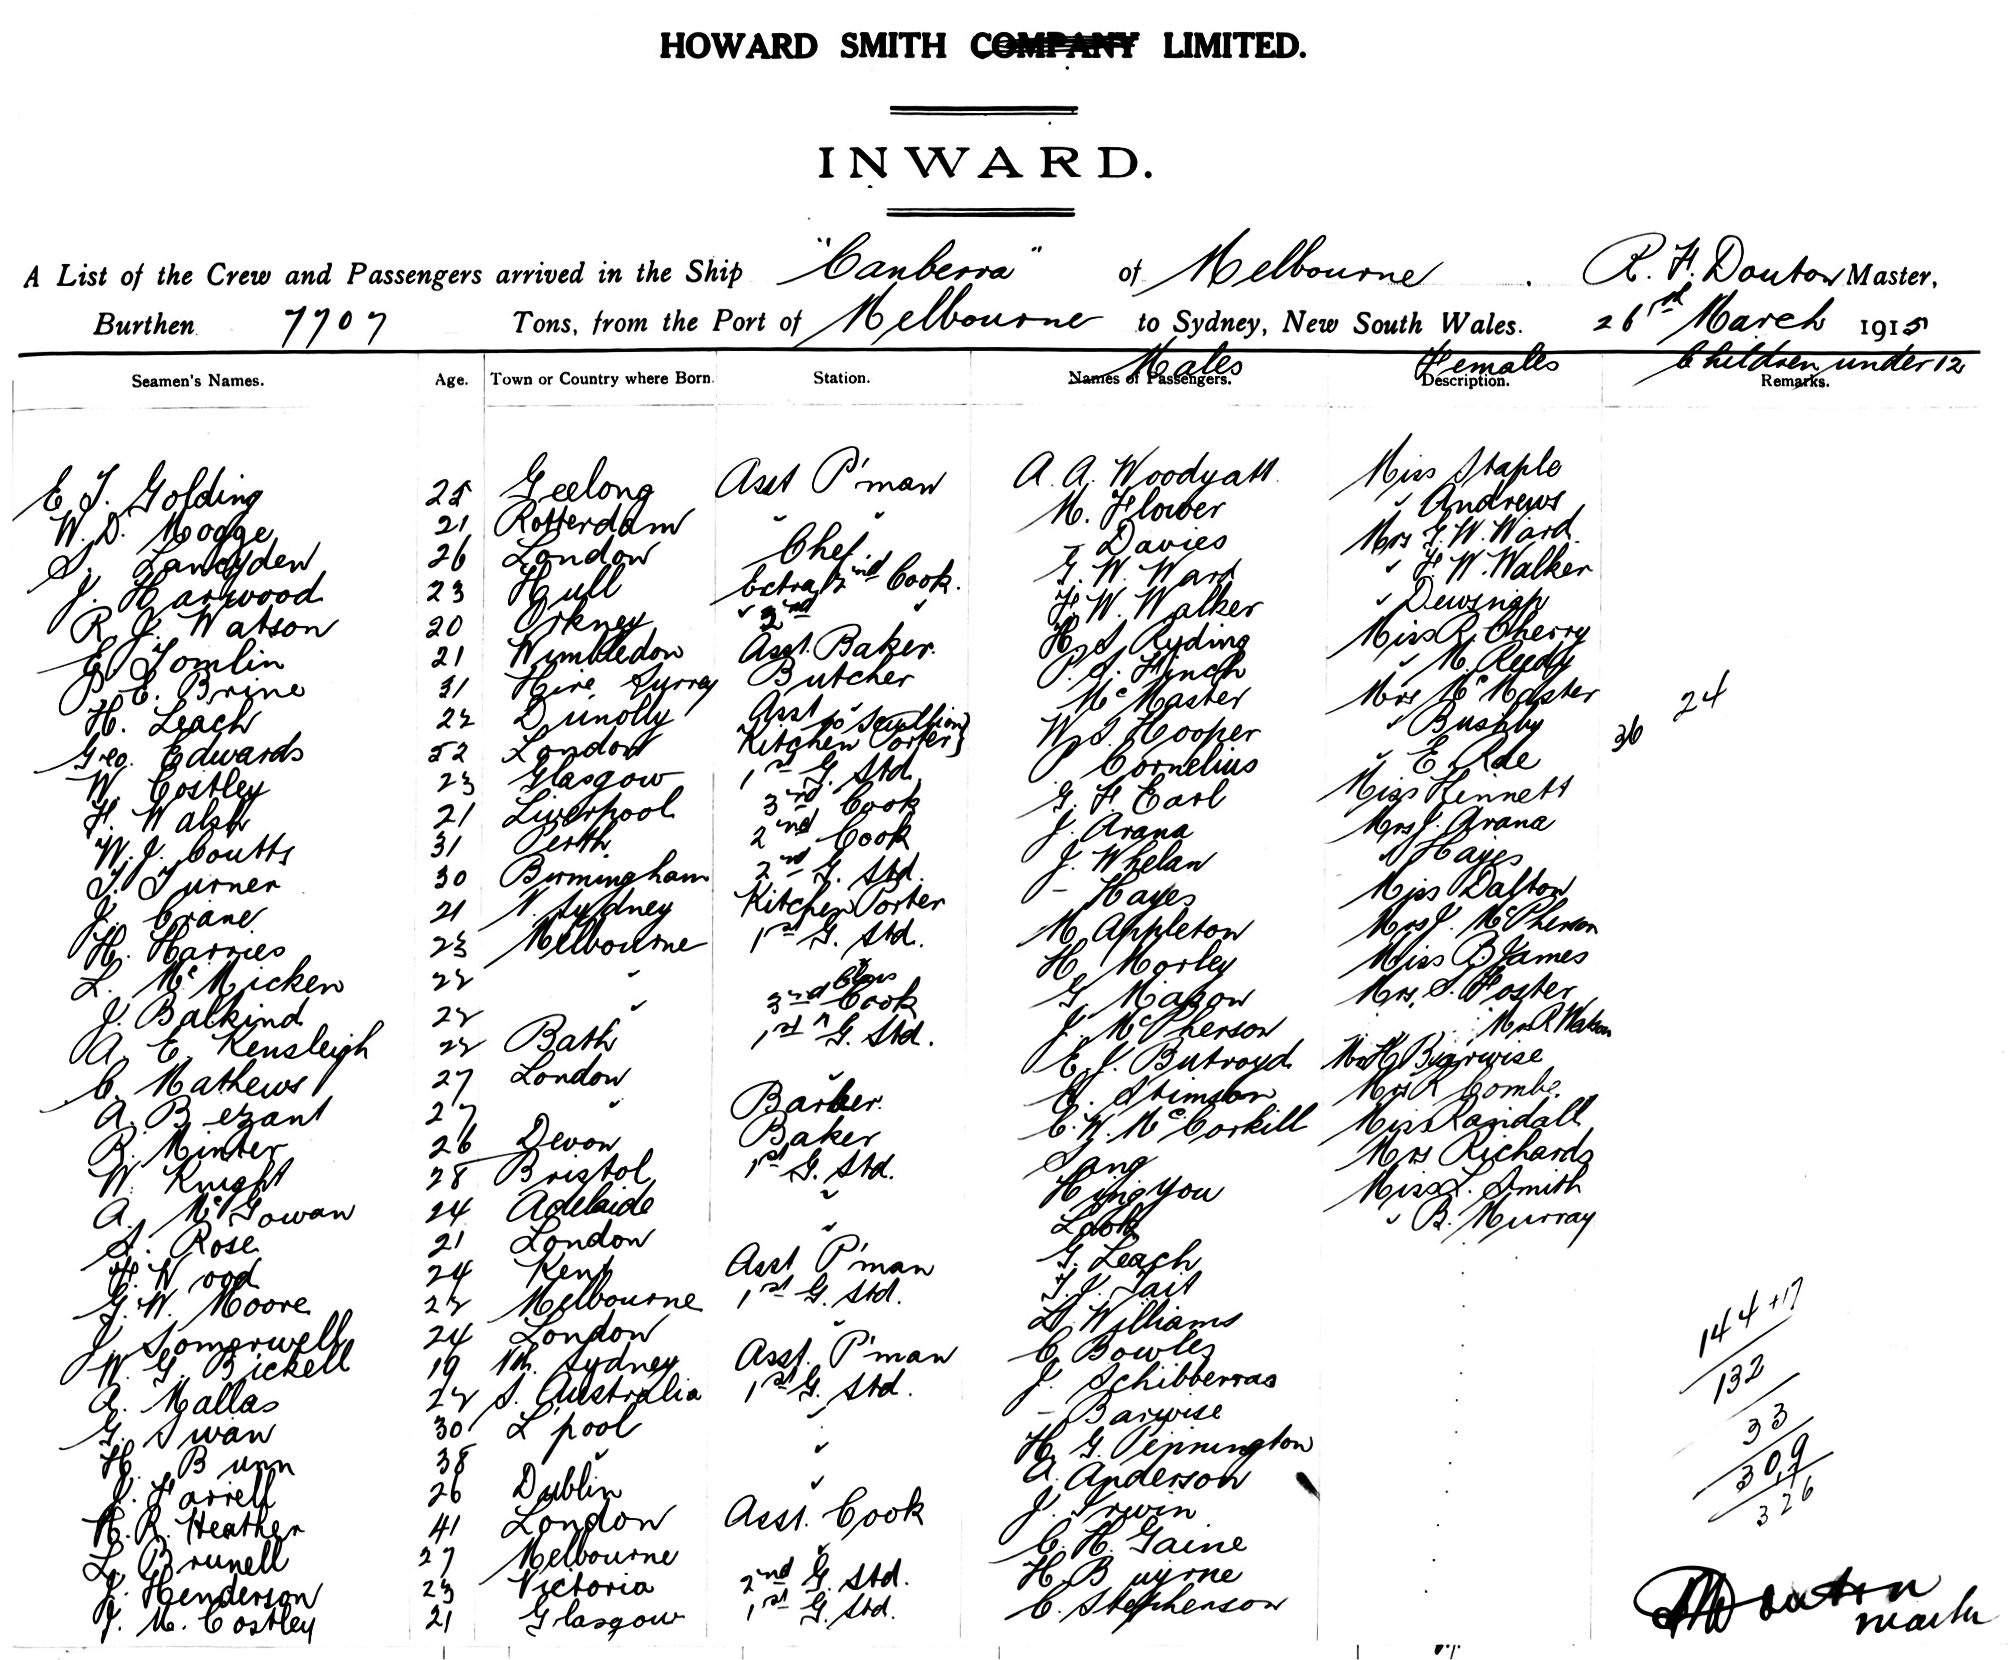 HOWARD SMITH COMPANY LIMITED.
INWARD.
A List of the Crew and Passengers arrived in the Ship "Canberra" of Melbourne. R. F. Douton Master,
Burthen 7707 Tons, from the Port of Melbourne to Sydney, New South Wales. 26 March 1915
Males Females Children under 12
Seamen's Names. Age. Town or Country where Born. Station. Names of Passengers. Description. Remarks.
E T. Golding 25 Geelong Asst P'man A. A. Woodyatt Miss Staple
W. D. Mogge 21 Rotterdam " " M. Flower " Andrews
S. Langden 26 London Chef. - Davies Mrs G. W. Ward
J. Harwood 23 Hull Extra 2nd Cook. G. W. Ward " F. W. Walker
R J. Watson 20 Orkney " 2nd " F. W. Walker " Dewsnap
E Tomlin 21 Wimbledon Asst. Baker. H. S. Ryding Miss R. Cherry
P. E. Brine 31 Hire, Surrey Butcher P. S. Hinch " M. Reedy
H. Leach 22 Dunolly Asst " McMaster Mrs McMaster
Geo. Edwards 52 London Kitchen Porter to Scullion W. S. Hooper " Bushby 36 24
W. Costley 23 Glasgow 1st G. Std. P Cornelius " E. Rae
F. Walsh 21 Liverpool 3rd Cook G. F. Earl Miss Kennett
W. J. Coutts 31 Perth 2nd Cook J. Arana Mrs J. Arana
T. Turner 30 Birmingham 2nd G. Std. J. Whelan " Hayes
J. Crane 21 N. Sydney Kitchen Porter - Hayes Miss Dalton
H. Harries 23 Melbourne 1st G. Std. M. Appleton Mrs J. McPherson
L. McMicken 22 " " H. Morley Miss B. James
J. Balkind 22 " 3rd Class Cook G. Mazow Mrs. S. Foster
A. E. Kensleigh 22 Bath 1st G. Std. J. McPherson Mrs R Watson
C. Mathews 27 London " E. J. Butroyd Mrs H. Barwise
A. Bezant 27 " Barber. Stimson Mrs R Combe.
R. Minter 26 Devon Baker C. W. McCorkill Miss Randall
W. Knight 28 Bristol 1st G. Std. Sang Mrs Richards
A. McGowan 24 Adelaide " Hing You Miss L. Smith
S. Rose 21 London " Look " B. Murray
F. Wood 24 Kent Asst P'man G. Leach
G. W. Moore 22 Melbourne 1st G. Std. T. J. Tait
J. Somerwell 24 London " D. Williams 144 + 17
W. G. Bickell 19 Nth. Sydney Asst. P'man C. Bowles 132
A. Mallas 22 S. Australia 1st G. Std. J. Schibberras
G. Swan 30 L'pool " - Barwise 33
H. Bunn 38 " " H. G. Pennington 309
J. Farrell 26 Dublin " A. Anderson 17
H. R. Heather 41 London Asst. Cook J. Irwin 326
L. Brunell 27 Melbourne " C. H. Gaine
J. Henderson 23 Victoria 2nd G. Std. H. Buyrne
J. M. Costley 21 Glasgow 1st G. Std. C. Stephenson Douton
master